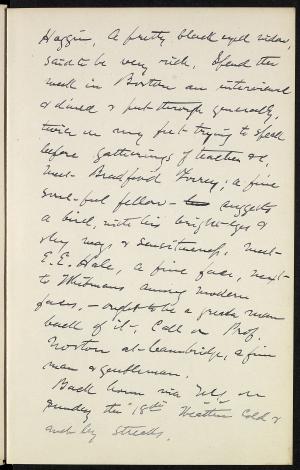 Haggin, a pretty black eyed widow,
said to be very rich. Spend the
week in Boston am interviewed
& dined & put through generally,
twice on my feet trying to speak
before gatherings of teachers &c,
meet Bradford Torrey; a fine
soul-ful fellow — suggests
a bird, with his bright eyes &
shy ways, & sensitiveness. Meet
E. E. Hale, a fine face, next
to Whitmans among modern
faces, — ought to be a great man
back of it. Call on Prof.
Norton at Cambridge, a fine
man & gentleman.
Back home via N.Y. on
Sunday the 18th Weather cold &
and by streaks.